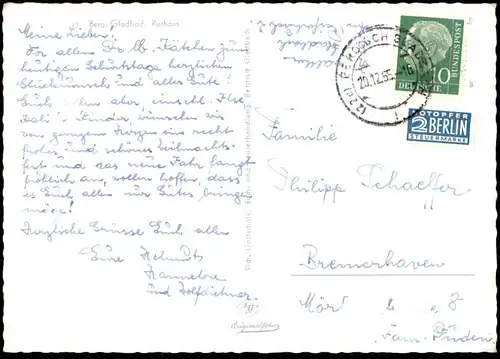 Berg. Gladbach, Rathaus
Meine Lieben!
Für allem Do lb. Kätchen zum
heutigen Geburtstage herzlichen
Glückwunsch und alles Gute!
Euch allen aber, einschl. Ilse,
Kinder, wünschen wir
von ganzem Herzen ein recht
frohes und schönes Weihnachts-
fest und das neue Jahr fangt
fröhlich an, wollen hoffen, dass
es Euch allen nur Gutes bringen
möge!
Herzliche Grüsse Euch allen
Eure Helmuth
Hannelore
und Wolfgang
Originalfoto
BERGISCH GLADBACH
20.12.55.-16
(22c)
10
DEUTSCHE BUNDESPOST
NOTOPFER
2 BERLIN
STEUERMARKE
Familie
Philipp Schaeffer
Bremerhaven